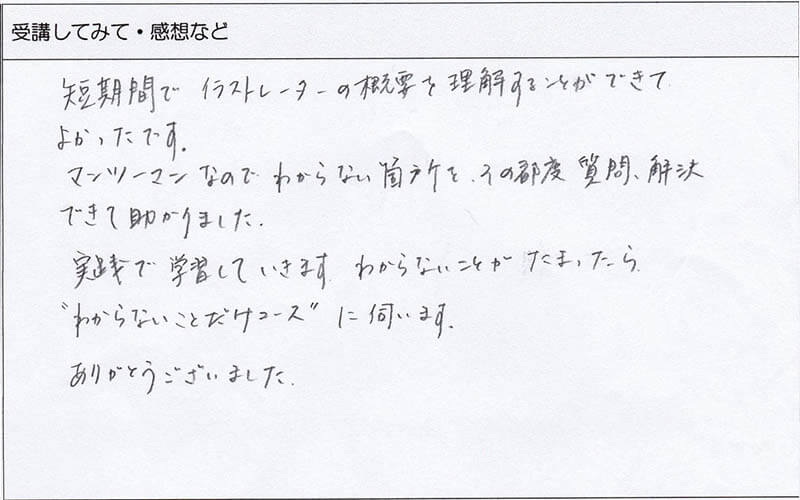 受講してみて・感想など
短期間で イラストレーターの概要を理解することができて
よかったです。
マンツーマンなので わからない箇所を、その都度 質問、解決
できて助かりました。
実践で学習していきます。わからないことが たまったら
"わからないことだけコース" に伺います。
ありがとうございました。